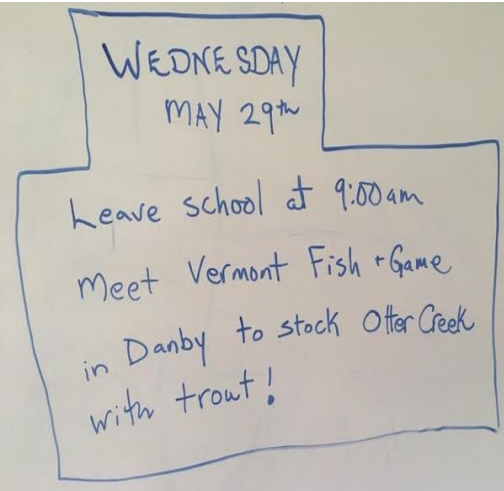 WEDNESDAY
MAY 29th
Leave school at 9:00am
Meet Vermont Fish + Game
in Danby to stock Otter Creek
with trout!